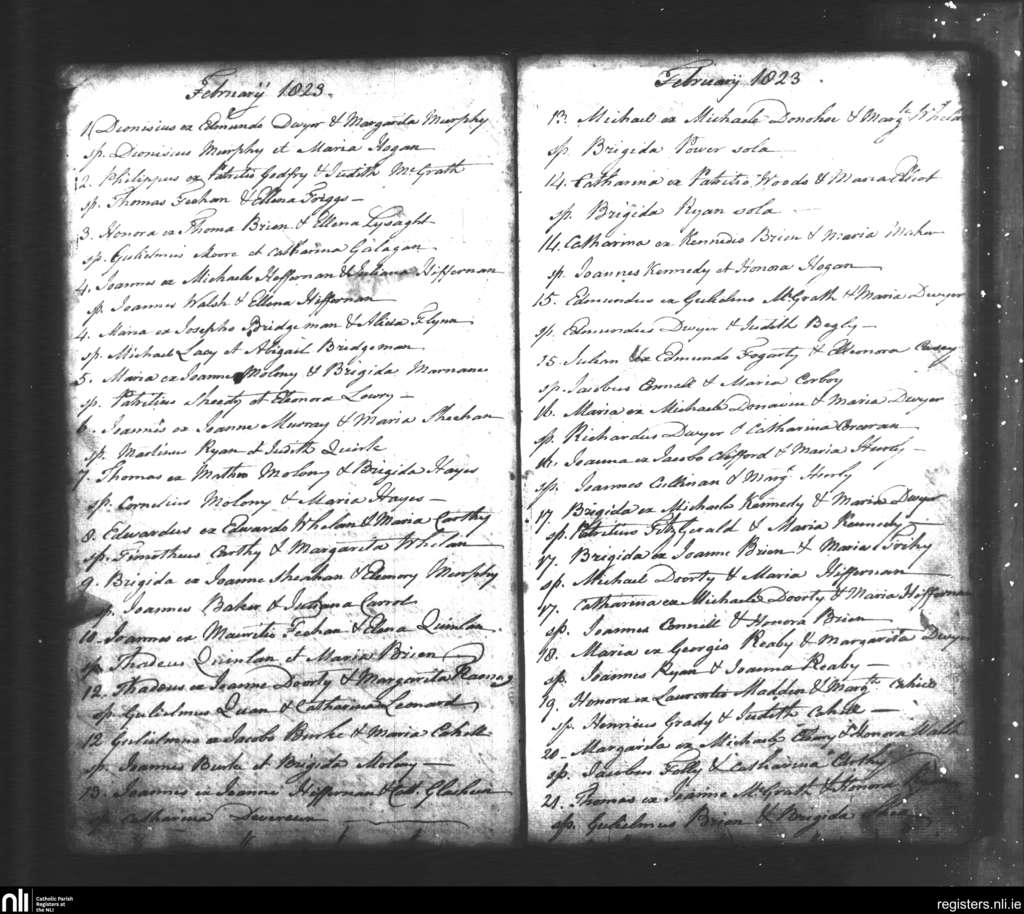 February 1823.
1 Dionisius ex Edmundo Dwyer & Margarita Murphy
sp. Dionisius Murphy et Maria Hogan
2. Philippus ex Patritio Godfry & Judith McGrath
sp. Thomas Feehan & Ellena Foggs
3. Honora ex Thoma Brien & Ellena Lysaght
sp. Gulielmus Moore et Catharina Galagan
4. Joannes ex Michaele Heffernan & Juliana Hiffernan
sp. Joannes Walsh & Ellena Hiffernan
4. Maria ex Josepho Bridgeman & Alicia Flynn
sp. Michael Lacy et Abigail Bridgeman
5. Maria ex Joanne Molony & Brigida Marnane
sp. Patritius Sheedy et Eleonora Lowry
6. Joannes ex Joanne Murray & Maria Sheehan
sp. Martinus Ryan & Judith Quirke
7. Thomas ex Matheo Molony & Brigida Hayes
sp. Cornelius Molony & Maria Hayes
8. Edwardus ex Edwardo Whelan & Maria Carthy
sp. Timotheus Carthy & Margarita Whelan
9. Brigida ex Joanne Sheahan & Eleonory Murphy
sp. Joannes Baker & Juliana Carrol
10. Joannes ex Mauritio Feehan & Elena Quinlan
sp. Thadeus Quinlan et Maria Brien
12. Thadeus ex Joanne Doorty & Margarita
sp. Gulielmus Quan & Catharina Leonard
12 Gulielmus ex Jacobo Burke & Maria Cahell
sp. Joannes Burke et Brigida Molony
13. Joannes ex Joanne Hiffernan & Cath.
sp Catharina Devereux
February 1823.
13. Michael ex Michaele Donohoe & Margt. Whelan
sp. Brigida Power sola
14. Catharina ex Patritio Woods & Maria Elliot
sp. Brigida Ryan sola
14. Catharina ex Kennedio Brien & Maria Maher
sp. Joannes Kennedy et Honora Hogan
15. Edmundus ex Gulielmo McGrath & Maria Dwyer
sp. Edmundus Dwyer & Judith Begly
15. Julian ex Edmundo Fogarty & Eleonora Casey
sp. Jacobus Connell & Maria Corboy
16. Maria ex Michaele Donavin & Maria Dwyer
sp. Richardus Dwyer & Catharina Corcoran
16. Joanna ex Jacobo Clifford & Maria Hurly
sp. Joannes Cullinan & Marg. Hurly
17 Brigida ex Michaele Kennedy & Maria Dwyer
sp. Patritius Fitzgerald & Maria Kennedy
17. Brigida ex Joanne Brien & Maria
sp. Michael Doorty & Maria Hiffernan
17. Catharina ex Michaele Doorty & Maria Hiffernan
sp. Joannes Connell & Honora Brien
18. Maria ex Georgio Reaby & Margarita Dwyer
sp. Joannes Ryan & Joanna Reaby
19. Honora ex Laurentio Madden & Margta.
sp. Henricus Grady & Judith Cahill
20. Margarita ex Michaele & Honora Walsh
sp. Jacobus & Catharina Carthy
21. Thomas ex Joanne McGrath & Honora
sp. Gulielmus Brien & Brigida Shea
nli
Catholic Parish
Registers at
the NLI
registers.nli.ie